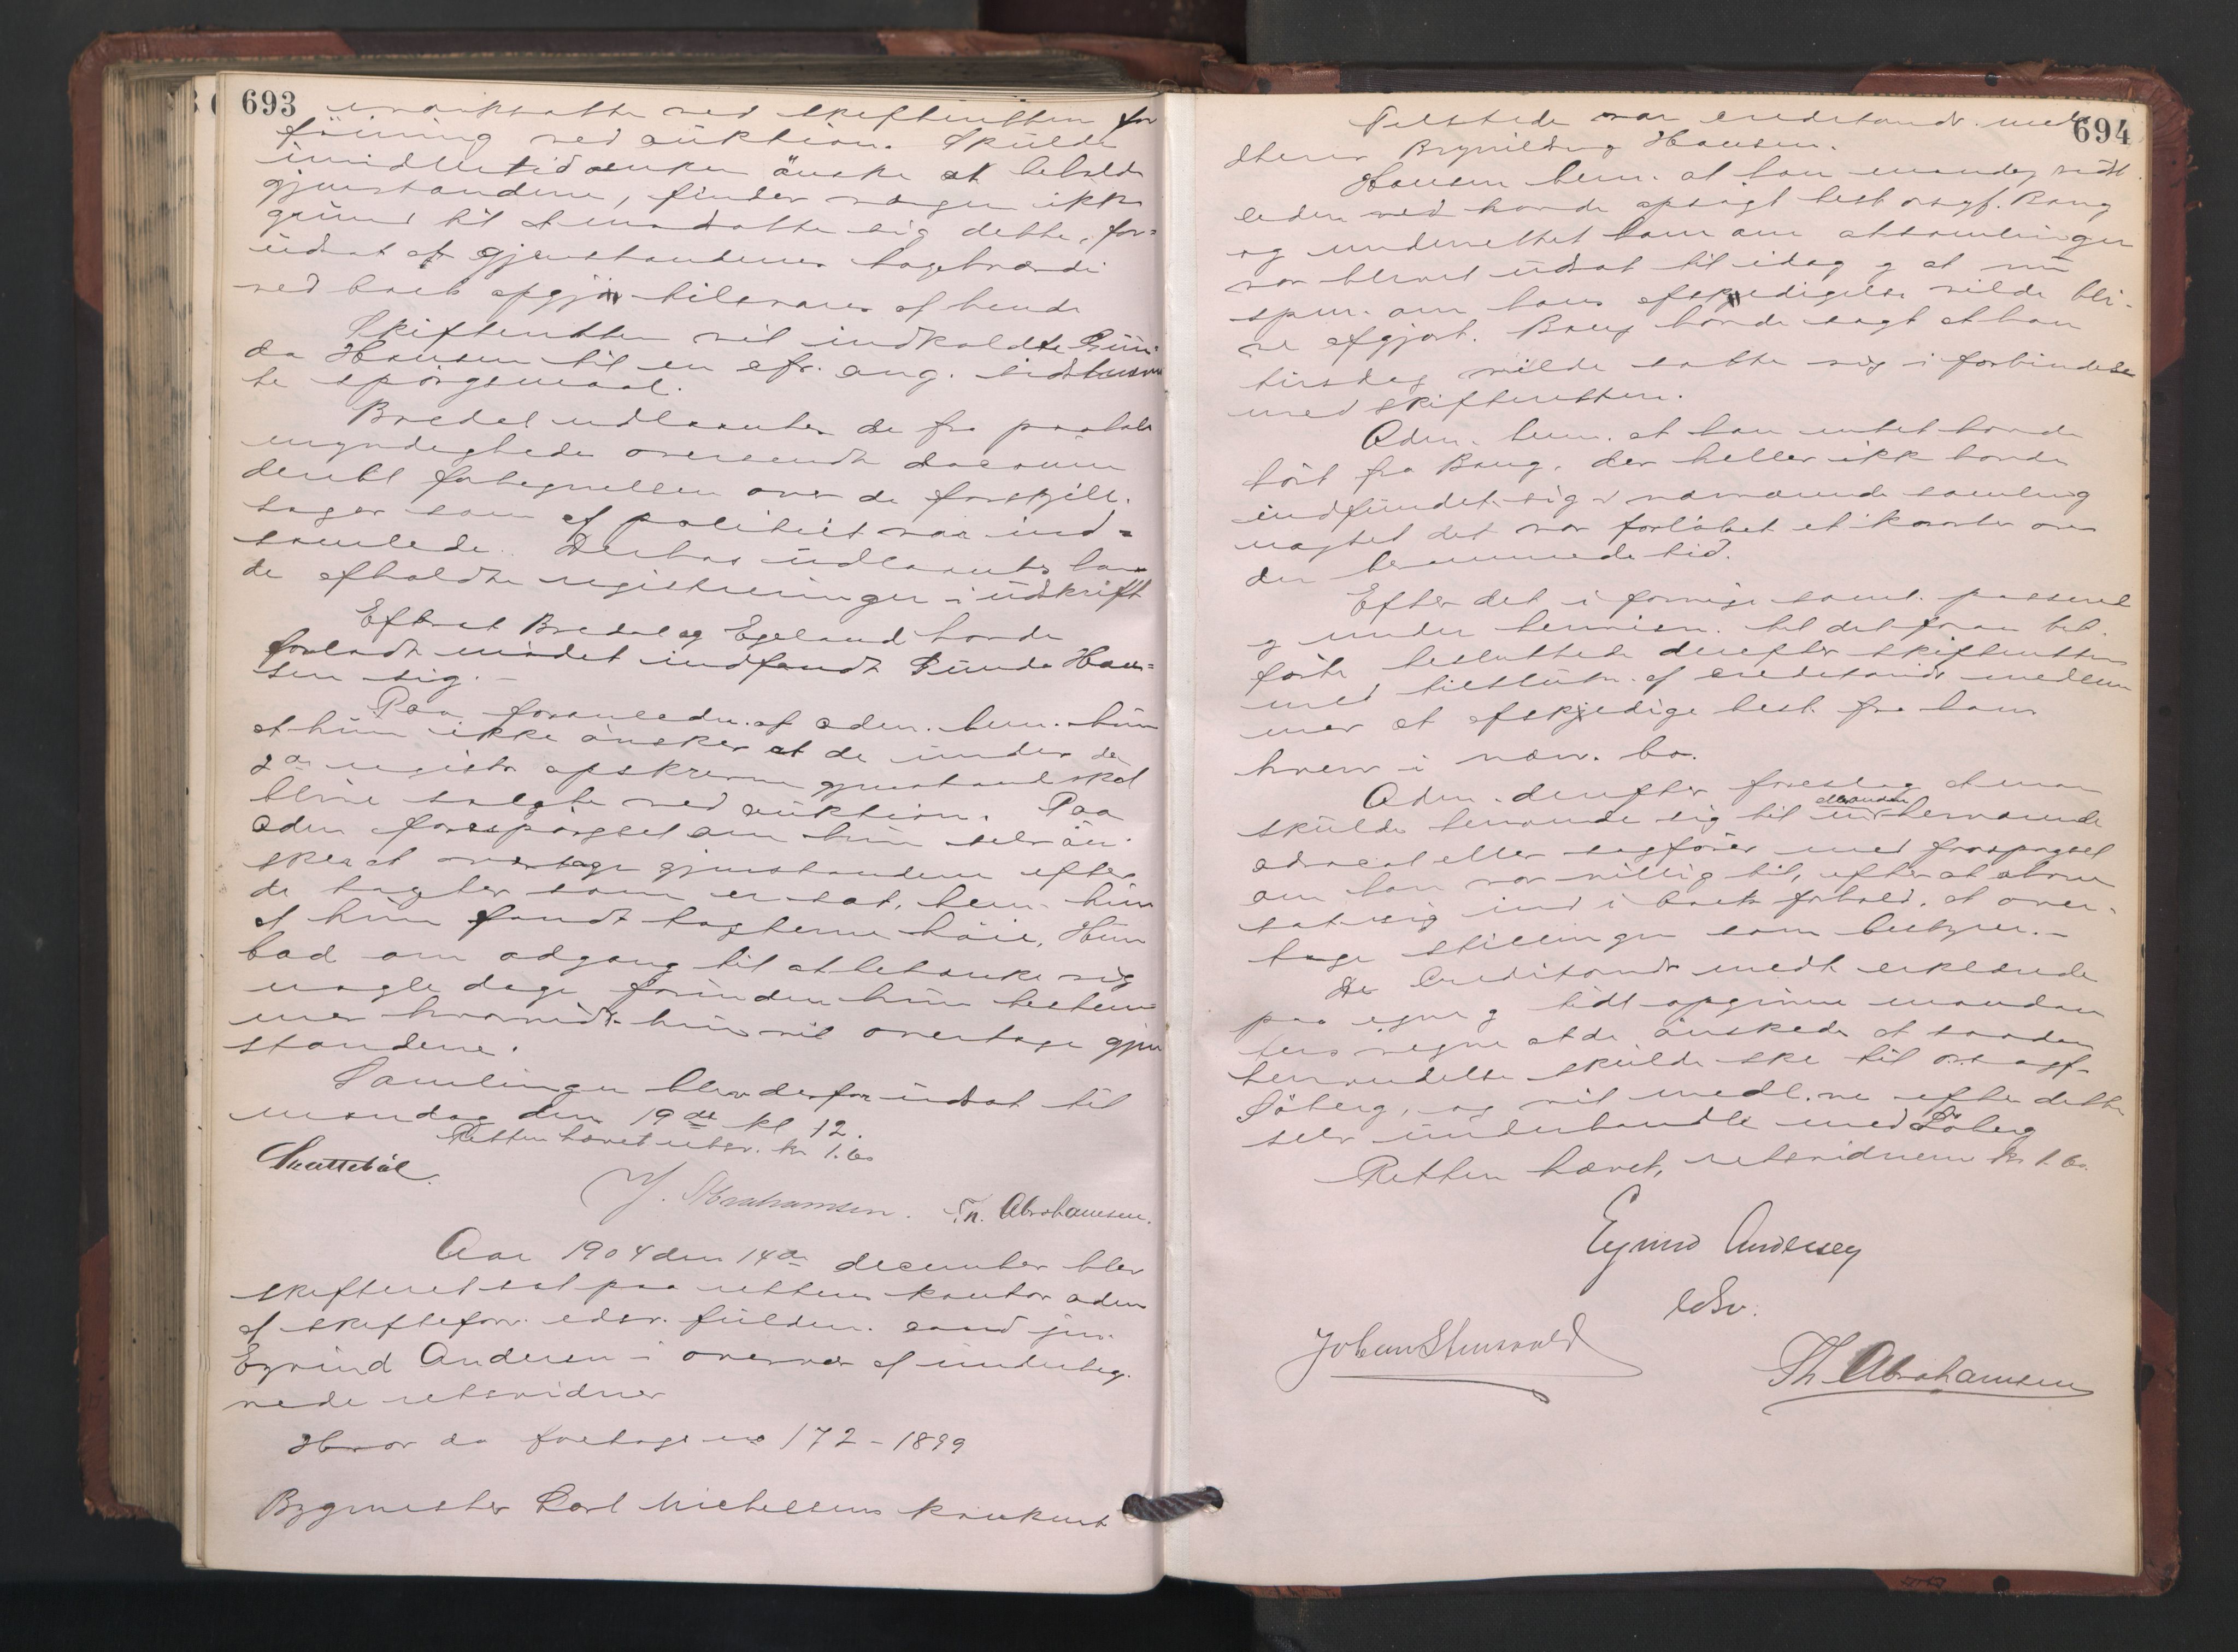 693
ved skifteretten for
föining ved auktion. Skulde
imidlertid enken önske at beholde
gjenstandene, finder ingen ikke
grund til at modsætte sig dette, for=
udsat at gjenstandenes tagstværdi
ved boets opgjør tilsvares af hende
Skifteretten vil indkaldte Gun
da Hansen til en efr. ang. sidstnævn
te spörgsmaal.
Bredal udlaante de fra
myndigheder oversendte docum
denbl fortegnelsen over de forskjell.
sager som af politiet var ind=
samlede. Derhos udlaantes ham
de afholdte registreringer i udskrift
Efterat Bredal og Egeland havde
forladt mödet indfandt Gunda Han=
sen sig. –
Paa foranledn. af adm. bem. hun
at hun ikke önsker at de under den
2den registr. opskrevne gjenstand skal
blive solgte ved auktion. Paa
adm forespörgsel om hun selv ön
sker at overtage gjenstandene efter
de tagster som er sat, bem. hun
at hun fandt tagsterne höie. Hun
bad om adgang til at betænke sig
nogle dage forinden hun bestem
mer hvorvidt hun vil overtage gjen
standene.
Samlingen blev derfor udsat til
mandag den 19de kl 12.
Retten hævet utsv. kr 1.60
Skattebøl.
J. Abrahamsen. Th. Abrahamsen.
Aar 1904 den 14de december blev
skifteret sat paa rettens kontor adm
af skiftefor. edsv. fuldm. cand jur.
Eyvind Andersen i overvær af underteg.
nede retsvidner
Hvor da foretages no 172 – 1899
Bygmester Carl Michelsens konkurs
694
Tilstede var creditudv. med
lemer Brynildsen og Hansen.
Hansen bem. at han mandag sidst
leden havde opsögt best. sagf. Bang
og underrettet ham om at samlingen
var blevet udsat til idag og at nu
spm. om hans afskjedigelse vilde bli-
ve afgjort. Bang havde sagt at han
tirsdag vilde sætte sig i forbindelse
med skifteretten.
Adm. bem. at han intet havde
hört fra Bang, der heller ikke havde
indfundet sig i nærværende samling
uagtet det var forlöbet et kvarter over
den berammede tid.
Efter det i forrige saml. passered
og under henvisn. til det foran til.
förte besluttede derefter skifteretten
med tilslutn. af creditudv. medlem
mer at afskjedige best. fra hans
hverv i nærv. bo.
Adm. derefter foreslog at man
skulde henvende sig til en anden herværende
advocat eller sagförer med forspörgsel
om han var villig til, efter at have
sat sig ind i boets forhold, at over-
tage stillingen som bestyrer. –
De Creditudv medl. erklærede
paa egne og sidst opgivne mandan
ters vegne at de önskede at saadan
henvendelse skulde ske til o.r.sagf.
Söberg, og vil medl.ne efter dette
selv underhandle med Söberg
Retten hævet, retsvidnerne kr 1.60.
Eyvind Andersen
edsv.
Johan Stensvold
Th. Abrahamsen